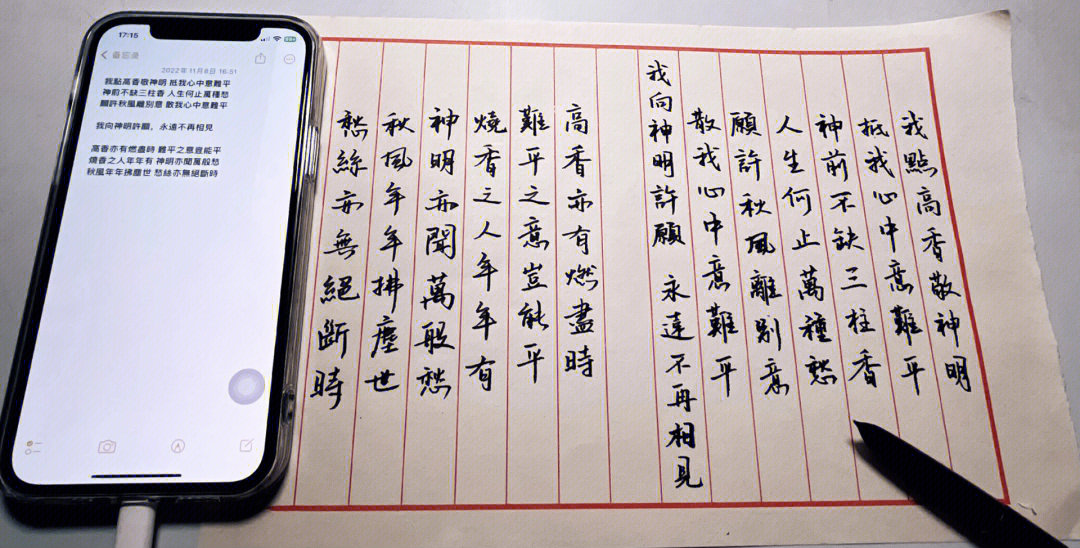 17:15
备忘录
2022年11月8日 16:51
我點高香敬神明 抵我心中意難平
神前不缺三柱香 人生何止萬種愁
願許秋風離別意 散我心中意難平
我向神明許願，永遠不再相見
高香亦有燃盡時 難平之意豈能平
燒香之人年年有 神明亦聞萬般愁
秋風年年拂塵世 愁絲亦無絕斷時
我點高香敬神明
抵我心中意難平
神前不缺三柱香
人生何止萬種愁
願許秋風離別意
散我心中意難平
我向神明許願 永遠不再相見
高香亦有燃盡時
難平之意豈能平
燒香之人年年有
神明亦聞萬般愁
秋風年年拂塵世
愁絲亦無絕斷時